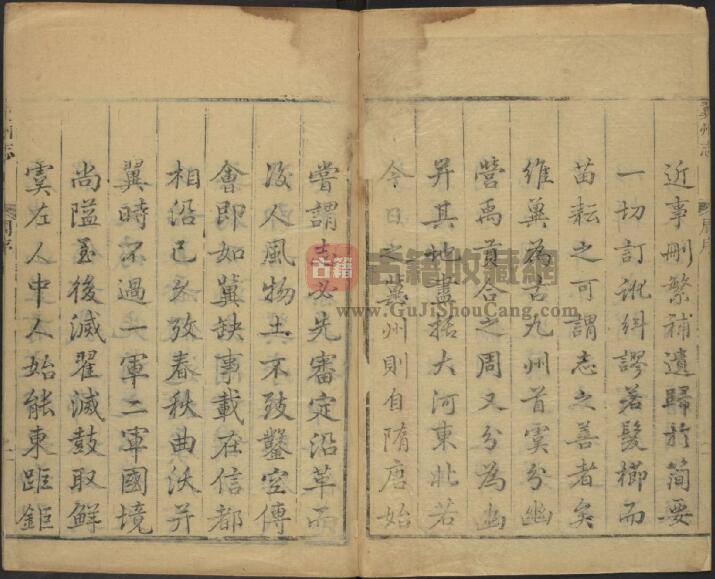 近事刪繁補遺歸於簡要
一切訂訛糾謬若髮櫛而
苗耘之可謂志之善者矣
維冀為古九州首虞分幽
營禹貢合之周又分為幽
并其地盡括大河東北若
今日之冀州則自隋唐始
嘗謂志必先審定沿革而
後人風物土不致鑿空傳
會即如冀缺事載在信都
相沿已久攷春秋曲沃并
翼時不過一軍二軍國境
尚隘至後滅翟滅鼓取鮮
虞左人中人始能東距鉅
冀州志
周序
州志
周序
古籍
古籍收藏网
www.GuJiShouCang.com